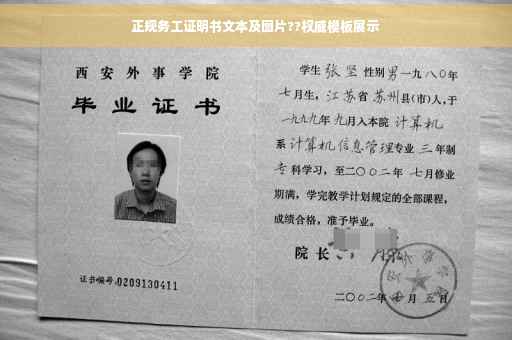 正规务工证明书文本及图片??权威模板展示
西安外事学院
毕业证书
证书编号:0209130411
学生 张坚 性别 男 一九八〇年
七月生，江苏省 苏州县(市)人，于
一九九九年 九月入本院 计算机
系 计算机信息管理专业 三 年制
专 科学习，至二〇〇二年 七月修业
期满，学完教学计划规定的全部课程，
成绩合格，准予毕业。
院长
二〇〇二年 月 五日